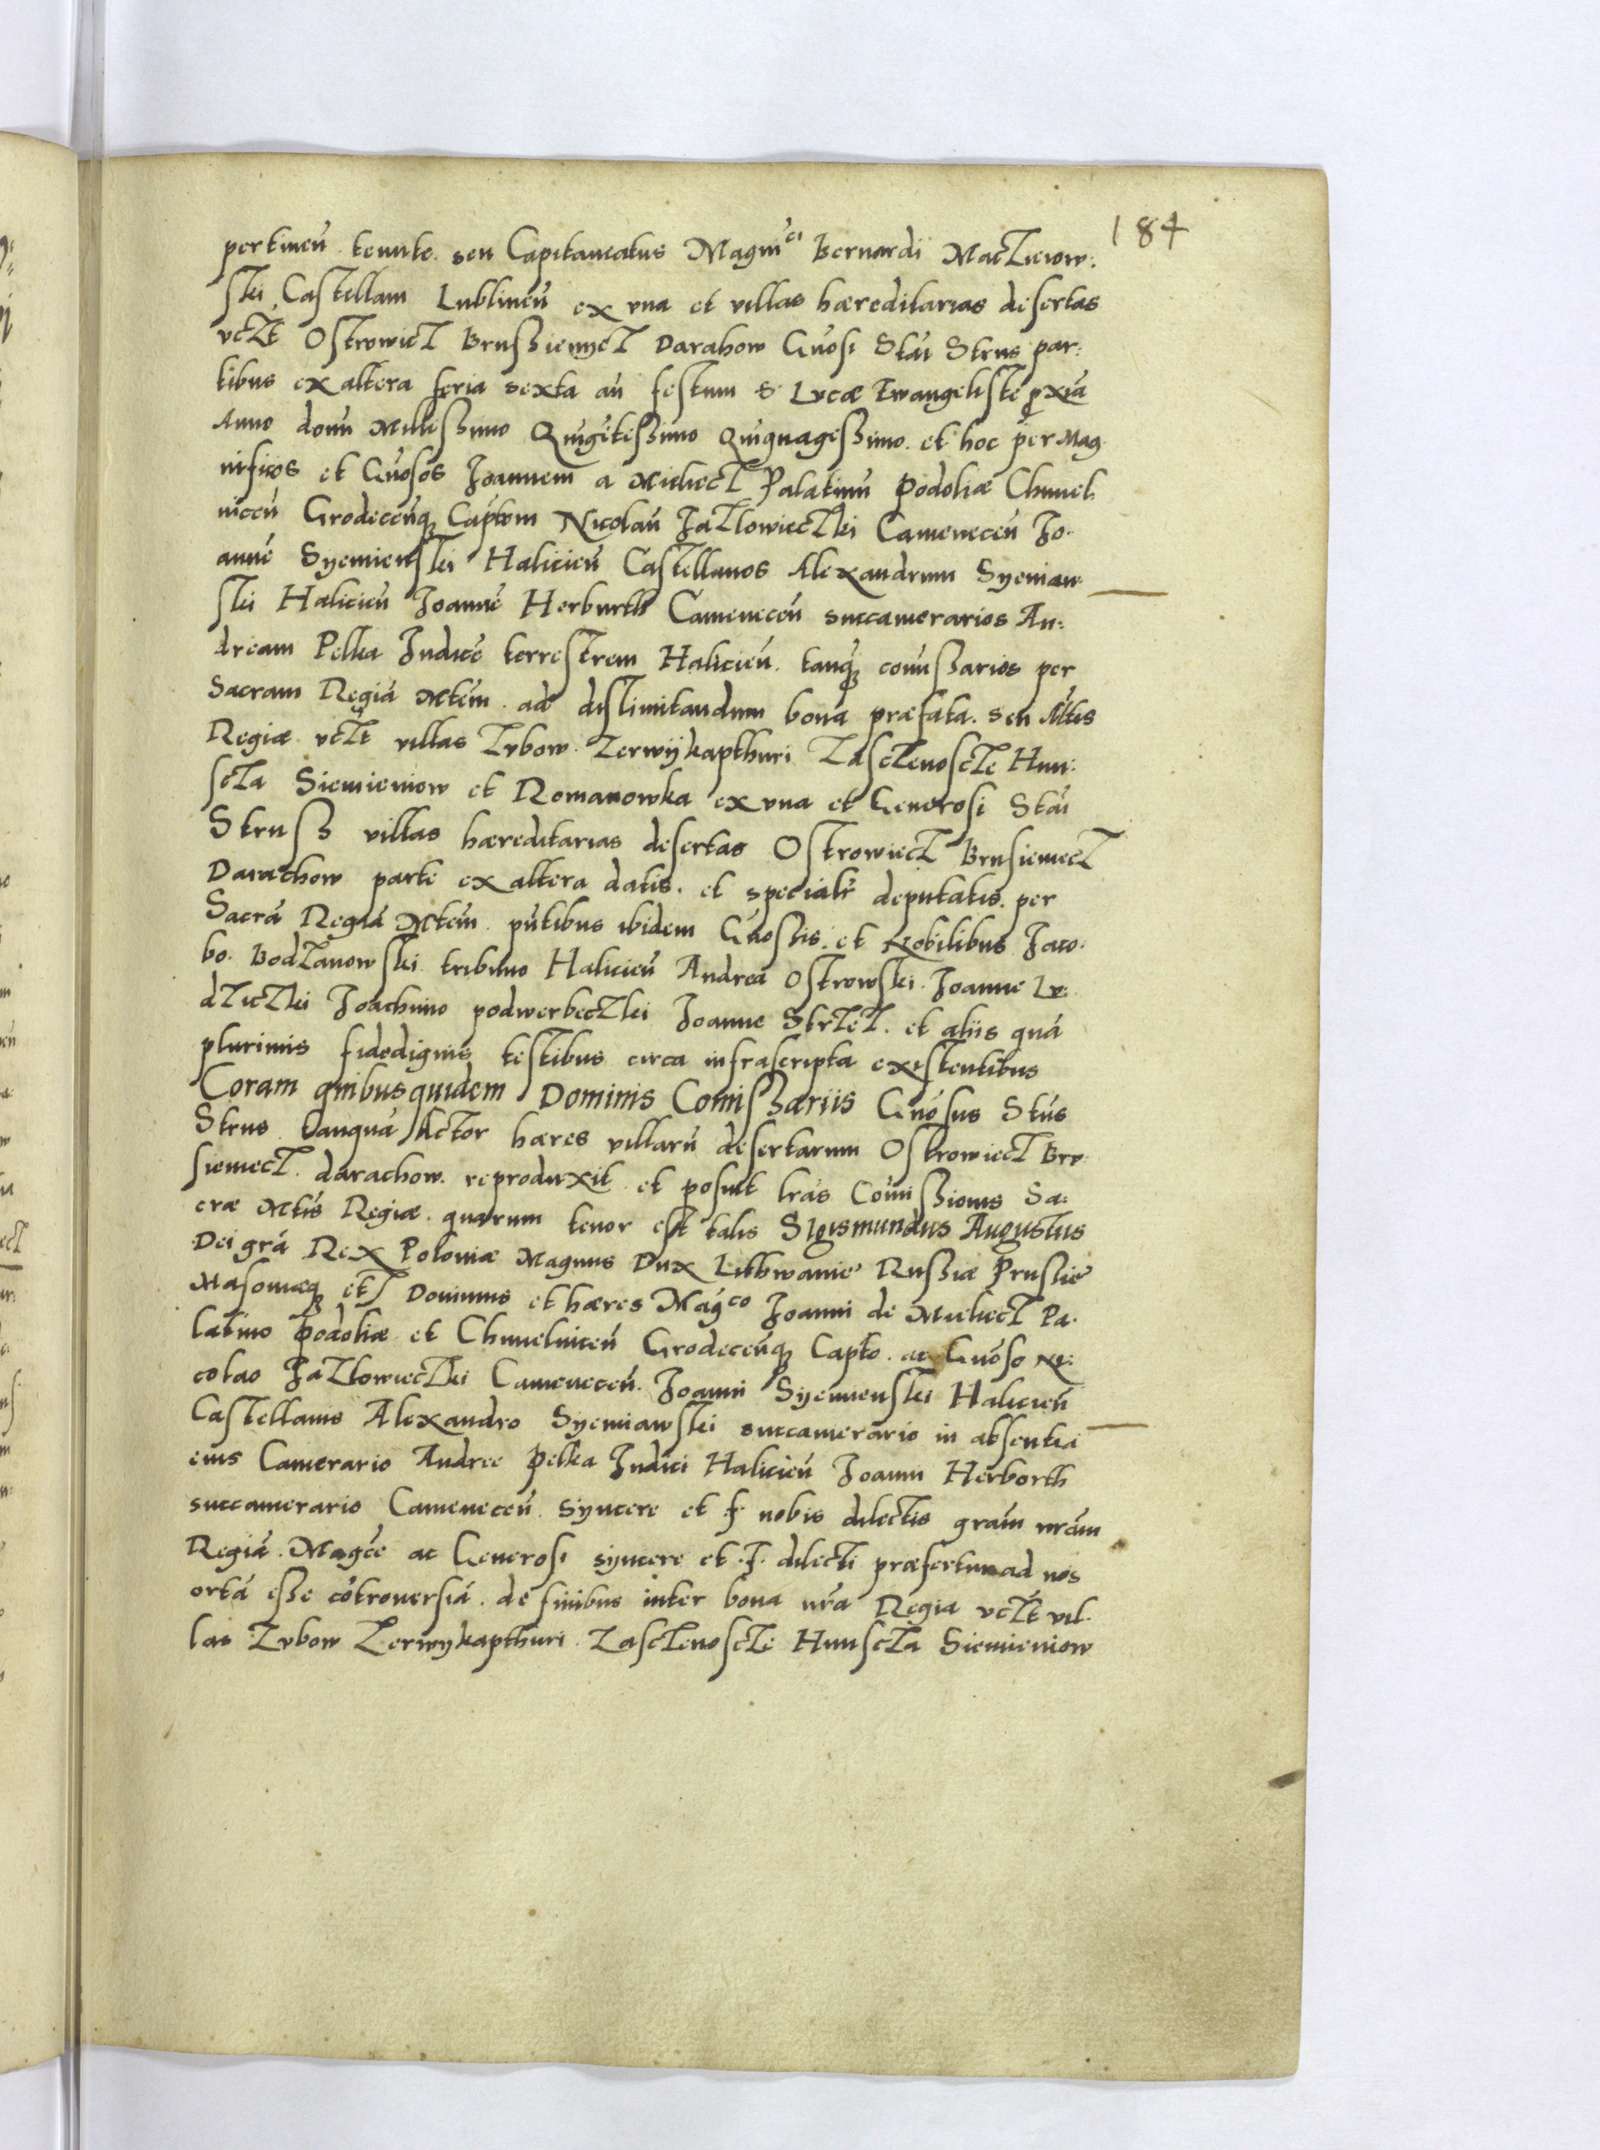 184
pertineń tenute seu Capitaneatus Magnici Bernardi Maczieiow:
skí Castellani Lublineń ex vna et villas hæreditarias desertas
vczt Ostrowiecz Brusziemyecz Darahow Gnosi Stai Strus par:
tibus ex altera feria sexta añ festum S Lvcæ Ewangeliste pxiã
Anno domi Milleszimo Quĩgẽteszimo quiquagesimo et hoc per Mag
nificos et Gnosos Joannem a Mielecz Palatinũ Podoliæ Chmiel
niceń Grodeceńq Captom Nicolaũ Jazlowieczki Cameneceń Jo
anne Syemienski Haliciеń Castellanos Alexandrum Syeniaw
ski Halicień Joanne Herburth Cameneceń succamerarios An:
dream Pelka Judice terrestrem Halicień tanq comiszarios per
Sacram Regiã Mtem ad distimitandum bona præfata seu Mtis
Regiæ vczt villas Zvbow Zerwÿkapthuri Zasczenoscze Hum:
scza Siemieniow et Romanowka ex vna et Generosi Stai
Strusz villas hæreditarias desertas Ostrowiecz Brusiemecz
Darachow parte ex altera datis et specialr deputatis per
Sacrã Regiã Mtem pñtibus ibidem Gnosis et Nobilibus Jaco
bo Bodzanowski tribuno Halicień Andrea Ostrowski Joanne Lv
dziczki Joachimo podwerbeczki Joanne Skrzet et aliis quã
plurimis fidedignis testibus circa infrascripta existentibus
Coram quibusquidem Dominis Comiszariis Gnosus Stus
Strus tanquã Actor hæres villarũ desertarum Ostrowiecz Brv
siemecz darachow reproduxit et posuit lras Comiszionis Sa:
cræ Mtis Regiæ quarum tenor est talis Sigismundus Augustus
Dei grã Rex Poloniæ Magnus Dux Litthwaniæ Rusziæ Prusziæ
Masoviæq etc Dominus et hæres Magco Joanni de Mielecz Pa
latino Podoliæ et Chmielniceń Grodeceńq Capto ac Gnoso Ni:
colao Jazlowieczki Cameneceń Joanni Syemienski Halicień
Castellanis Alexandro Syeniawski succamerario in absentia
eius Camerario Andree Pelka Judici Halicień Joanni Herborth
succamerario Cameneceń syncere et f nobis dilectis gram nram
Regiã Magce ac Generosi syncere et f dilecti præfertur ad nos
ortã esse cõtroversiã de finibus inter bona nra Regia vczt vil
las Zvbow Zerwykapthuri Zasczenoscze Humscza Siemieniow